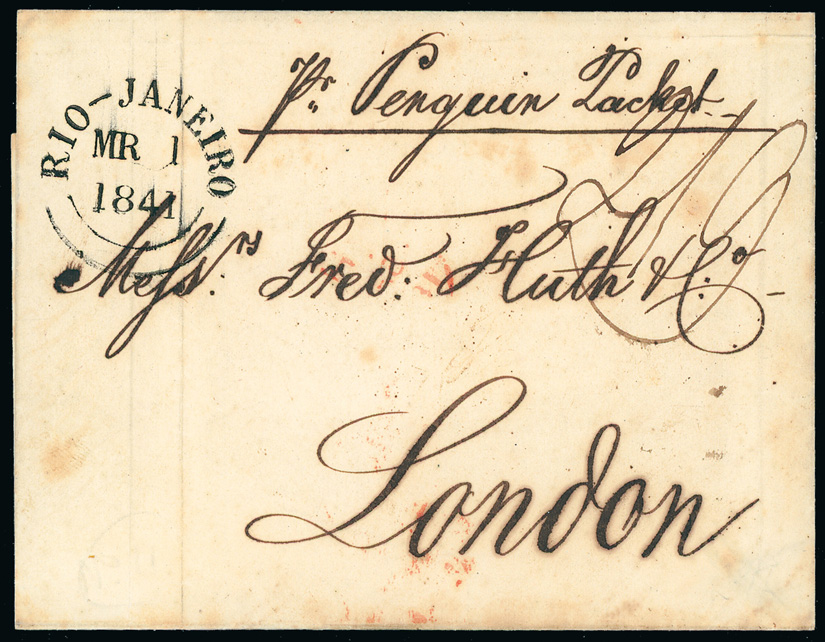 pr. Penguin Packet
RIO-JANEIRO
MR 1
1841
Messrs. Fred. Huth & Co.
London